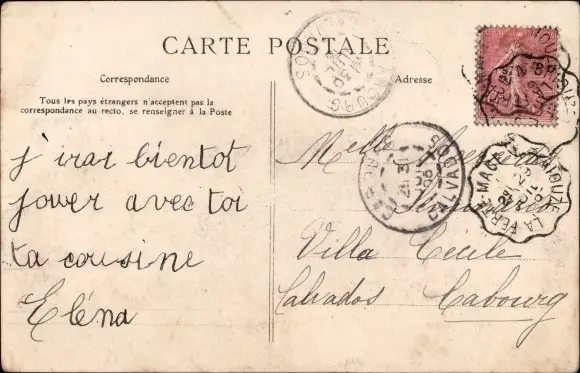 CARTE POSTALE
Correspondance
Tous les pays étrangers n'acceptent pas la
correspondance au recto, se renseigner à la Poste
j'irai bientot
jouer avec toi
ta cousine
Eléna
Adresse
Melle
Villa Cécile
Calvados Cabourg
CABOURG
CALVADOS